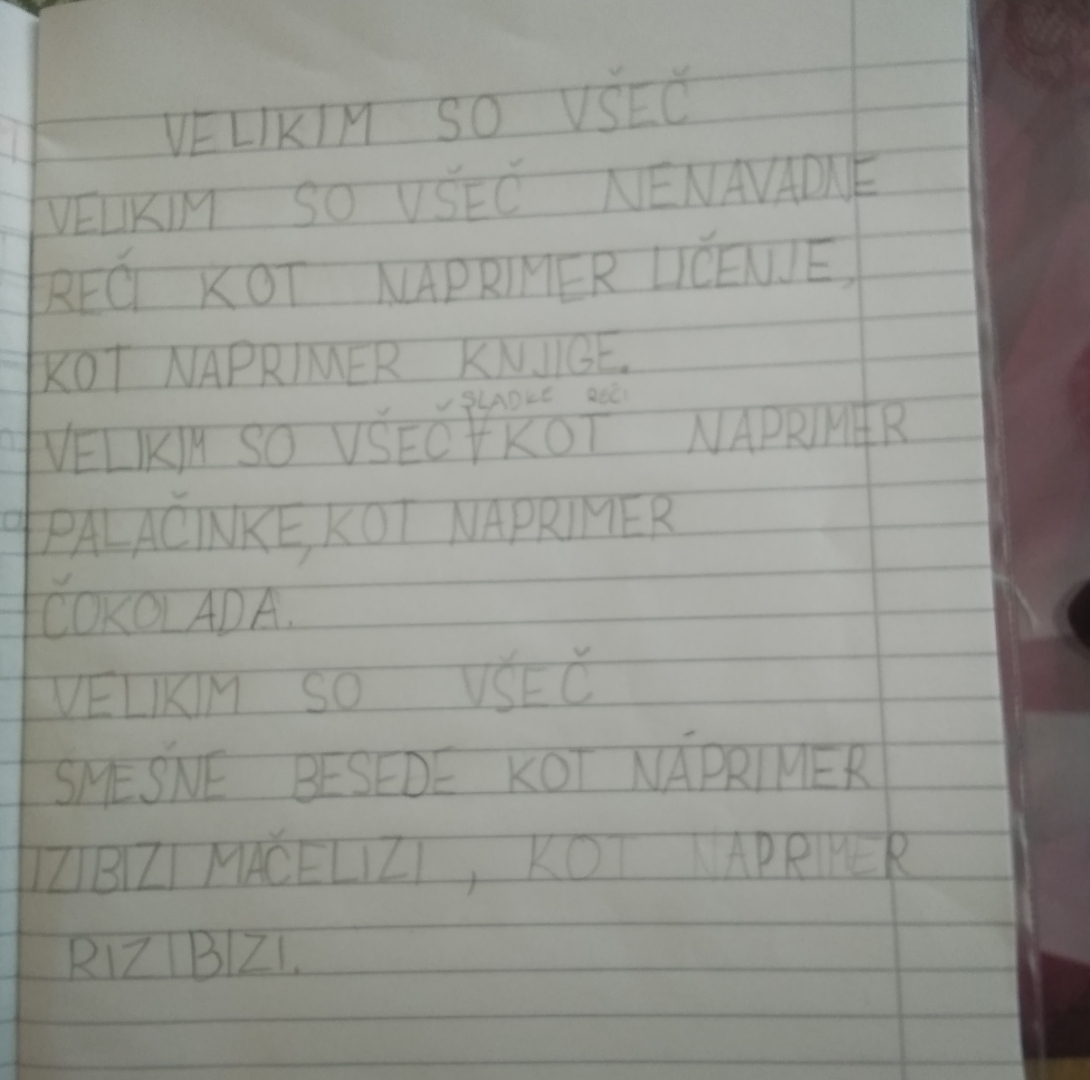 VELIKIM SO VŠEČ
VELIKIM SO VŠEČ NENAVADNE
REČI KOT NAPRIMER LIČENJE,
KOT NAPRIMER KNJIGE.
SLADKE REČI
VELIKIM SO VŠEČ KOT NAPRIMER
PALAČINKE, KOT NAPRIMER
ČOKOLADA.
VELIKIM SO VŠEČ
SMEŠNE BESEDE KOT NAPRIMER
IZIBIZI MAČELIZI, KOT NAPRIMER
RIZIBIZI.